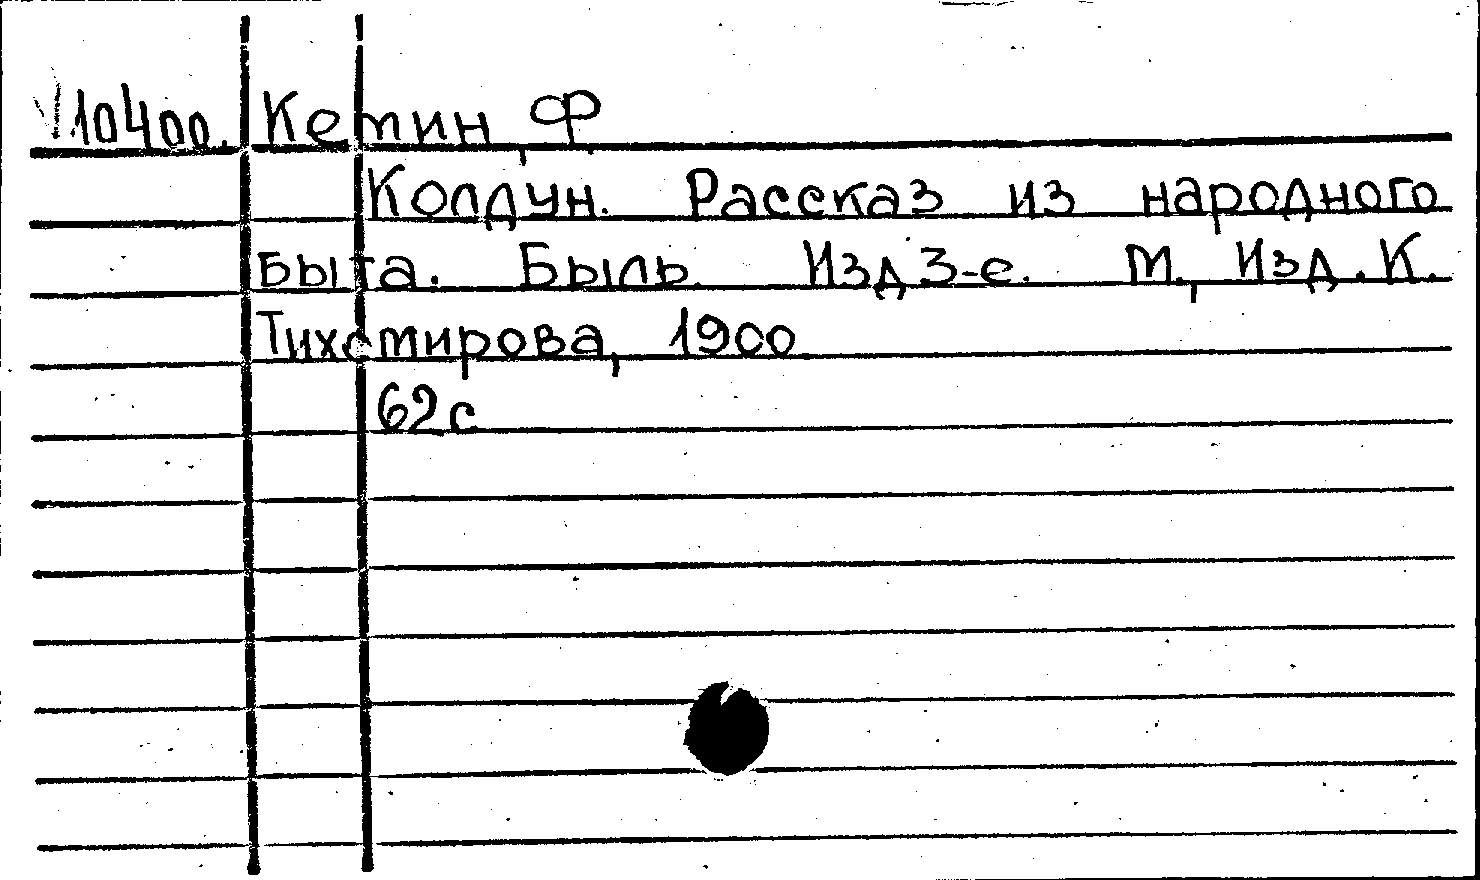 10400. Кетин, Ф.
Колдун. Рассказ из народного
быта. Быль. Изд 3-е. М., Изд. К.
Тихомирова, 1900
62 с